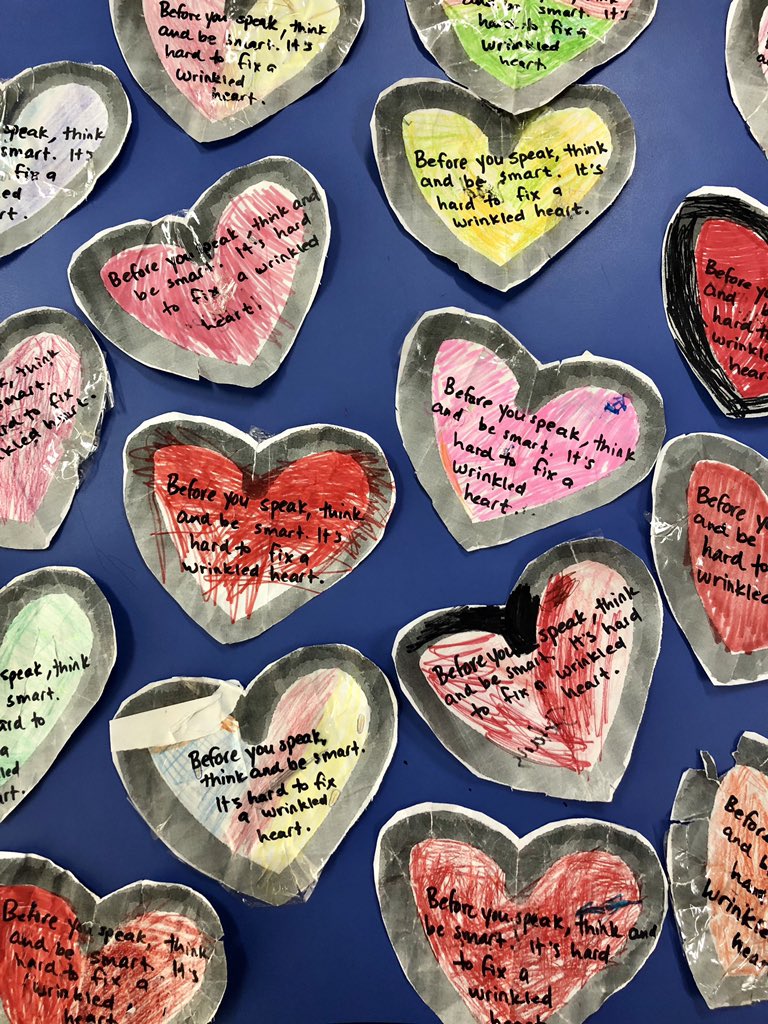 Before you speak, think
and be smart. It's
hard to fix a
wrinkled
heart.
hard to fix a
wrinkled
heart
speak, think
smart. It's
fix a
Before you speak, think
and be smart. It's
hard to fix a
wrinkled heart.
Before you speak, think and
be smart. It's hard
to fix a wrinkled
heart.
Before
and
hard to
wrinkled
think
smart.
hard to fix
wrinkled heart.
Before you speak, think
and be smart. It's
hard to fix a
wrinkled
heart.
Before you speak, think
and be smart. It's
hard to fix a
wrinkled heart.
Before
and be
hard to
wrinkled
speak, think
smart.
to
a
Before you speak, think
and be smart. It's hard
to fix a wrinkled
heart.
Before you speak,
think and be smart.
It's hard to fix
a wrinkled
heart.
Before
and b
hard
wrinkle
Before you speak, think
and be smart. It's
hard to fix a
wrinkled
heart.
Before you speak, think and
be smart. It's hard
to fix a
wrinkled
heart